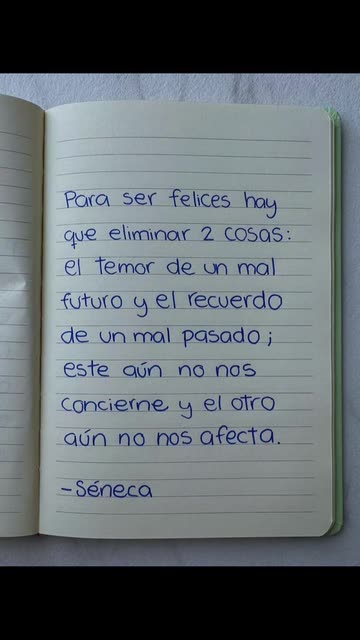 Para ser felices hay
que eliminar 2 cosas:
el temor de un mal
futuro y el recuerdo
de un mal pasado;
este aún no nos
concierne y el otro
aún no nos afecta.
-Séneca